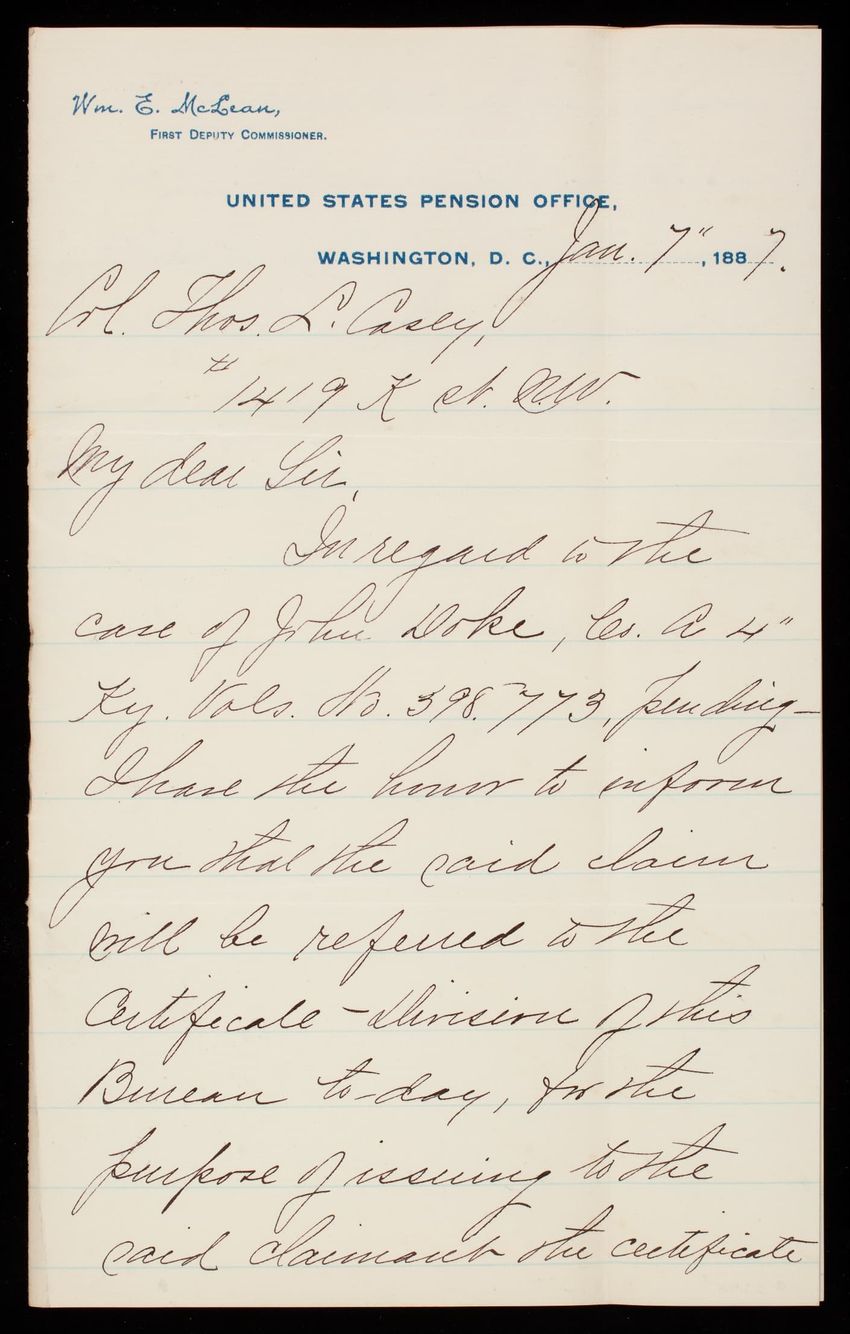 Wm. E. McLean,
FIRST DEPUTY COMMISSIONER.
UNITED STATES PENSION OFFICE,
WASHINGTON, D. C., Jan. 7", 1887.
Col. Thos. L. Casey,
# 1419 K st. N.W.
My dear Sir,
In regard to the
case of John Doke, Co. A 4"
Ky. Vols. No. 398.773, pending—
I have the honor to inform
you that the said claim
will be referred to the
Certificate-Division of this
Bureau to-day, for the
purpose of issuing to the
said claimant the certificate